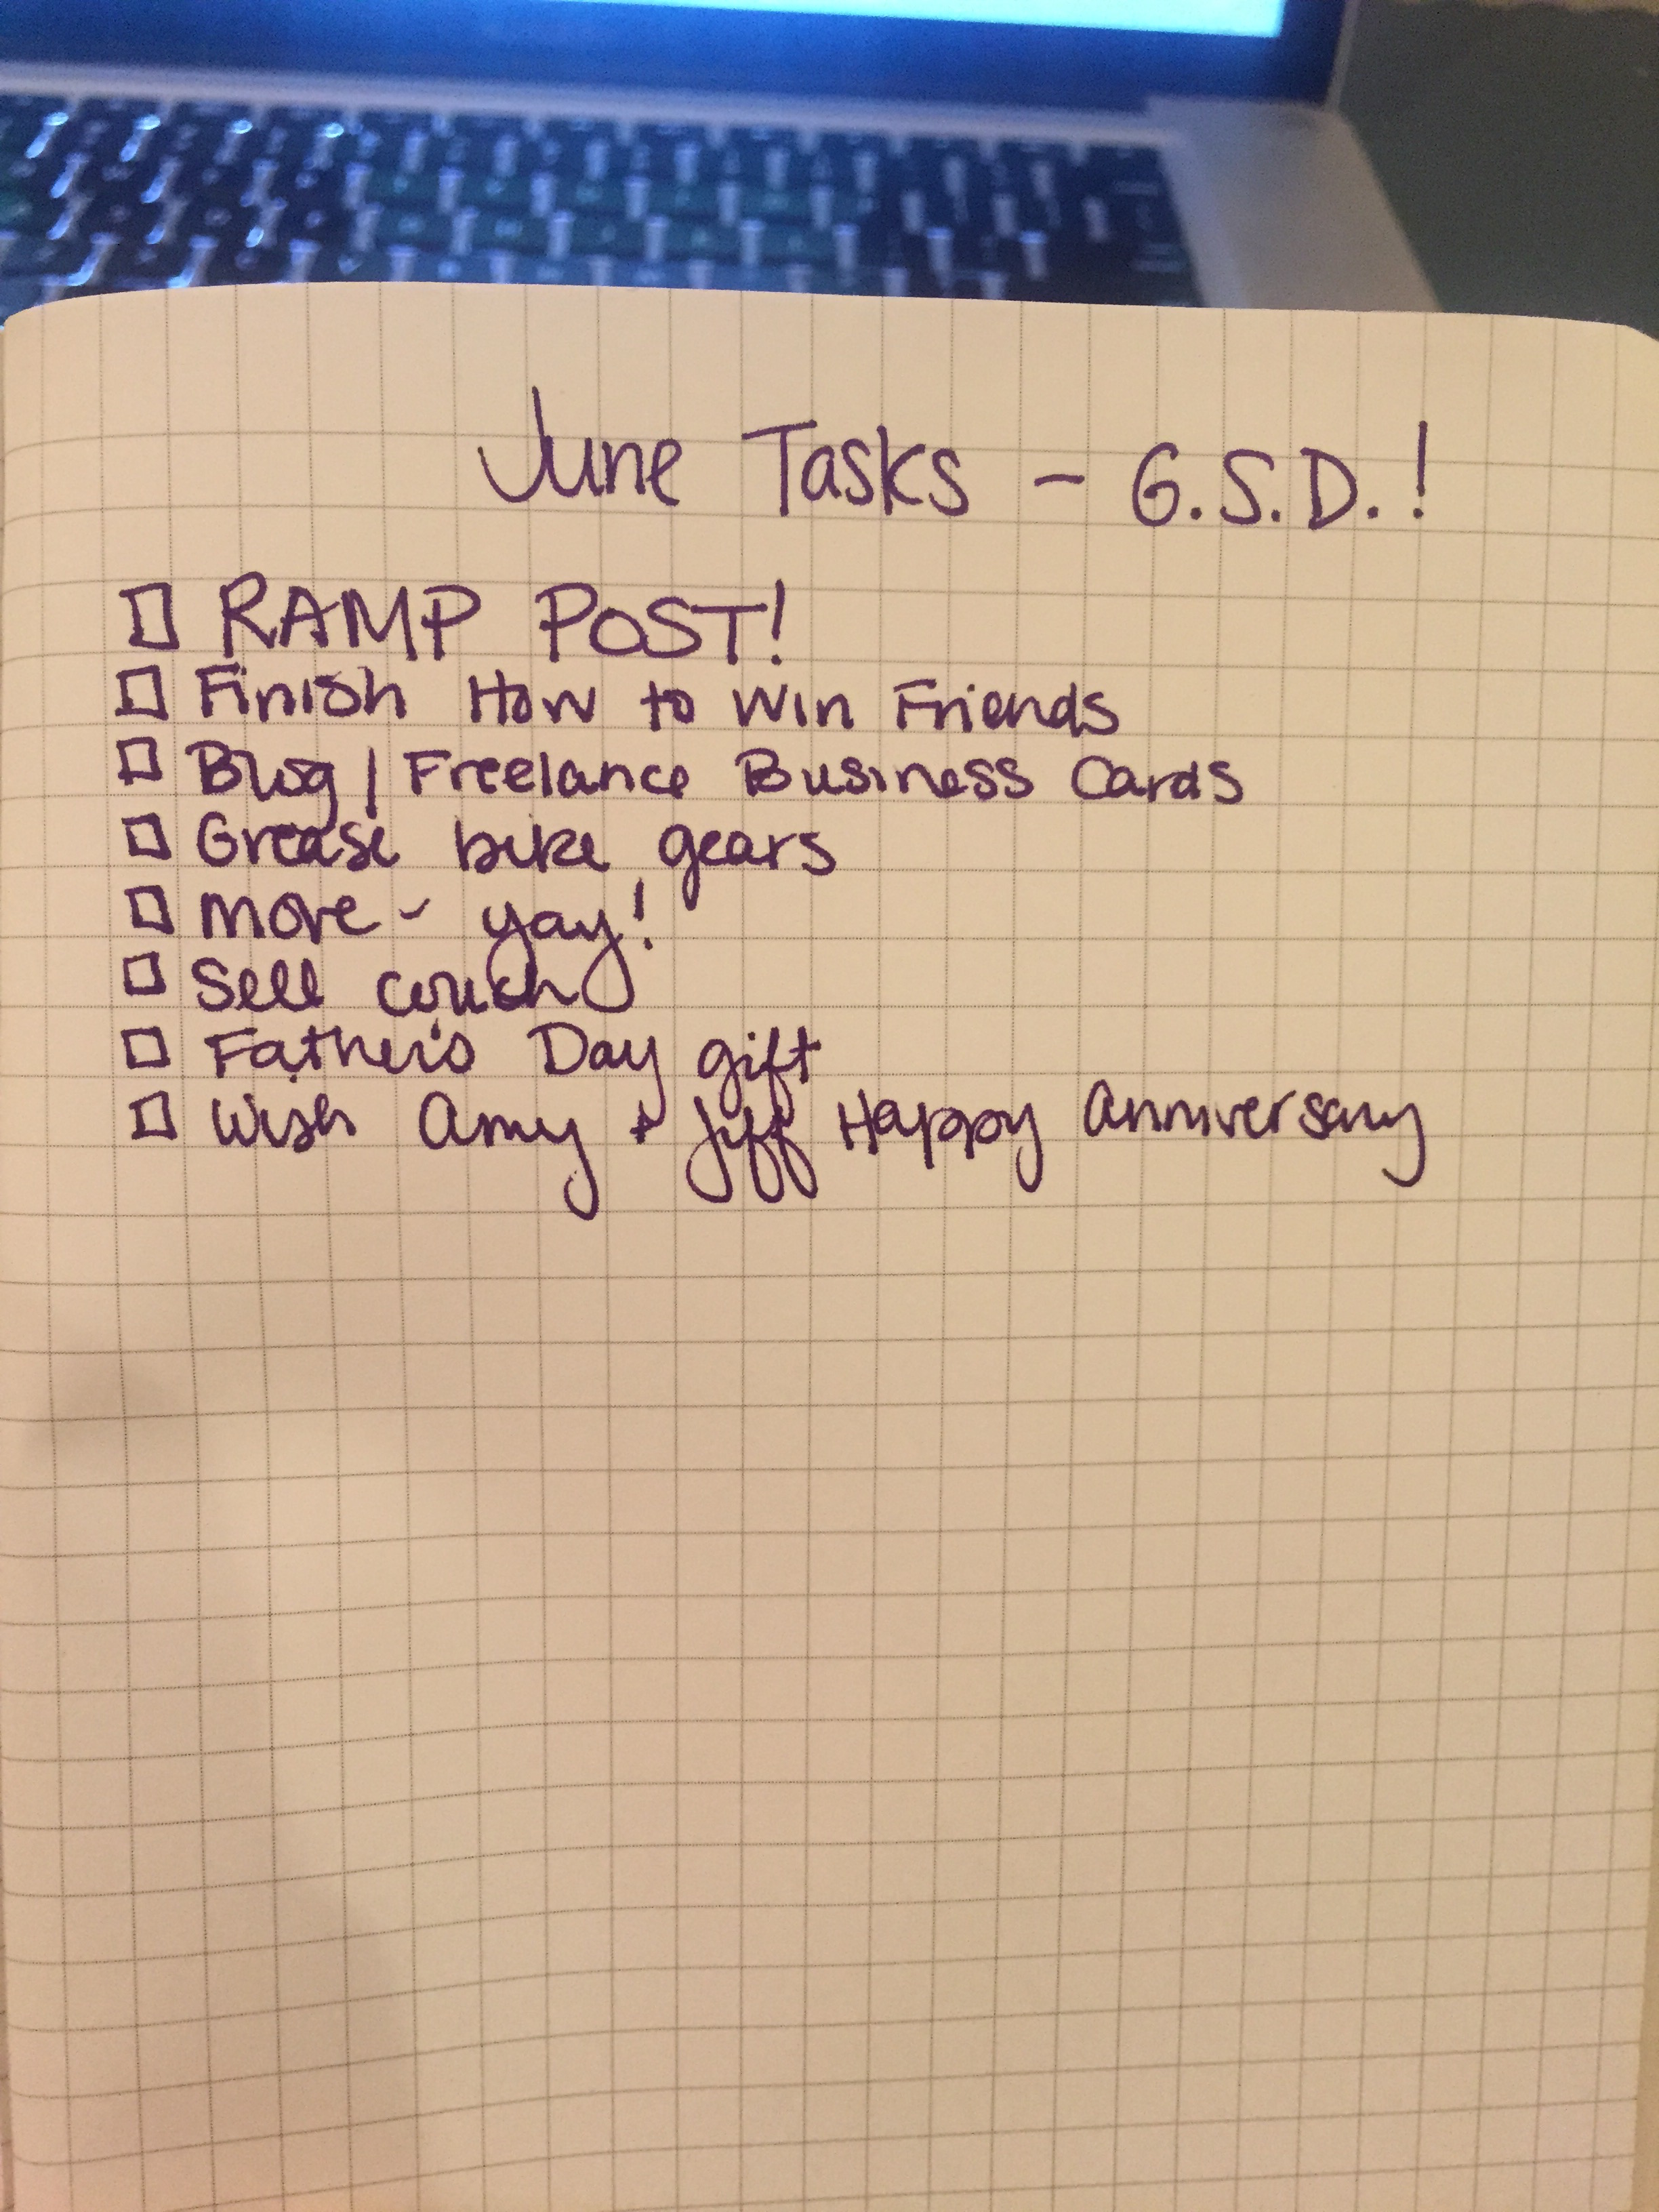 June Tasks - G.S.D.!
RAMP POST!
Finish How to Win Friends
Blog / Freelance Business Cards
Grease bike gears
Move - yay!
Sell couch
Father's Day gift
Wish Amy + Jeff Happy Anniversary